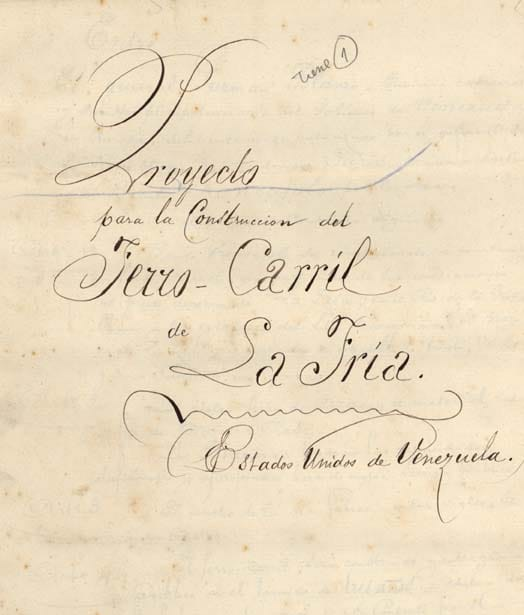 1
Proyecto
para la Construccion del
Ferro-Carril
de
La Fría.
(Estados Unidos de Venezuela.)